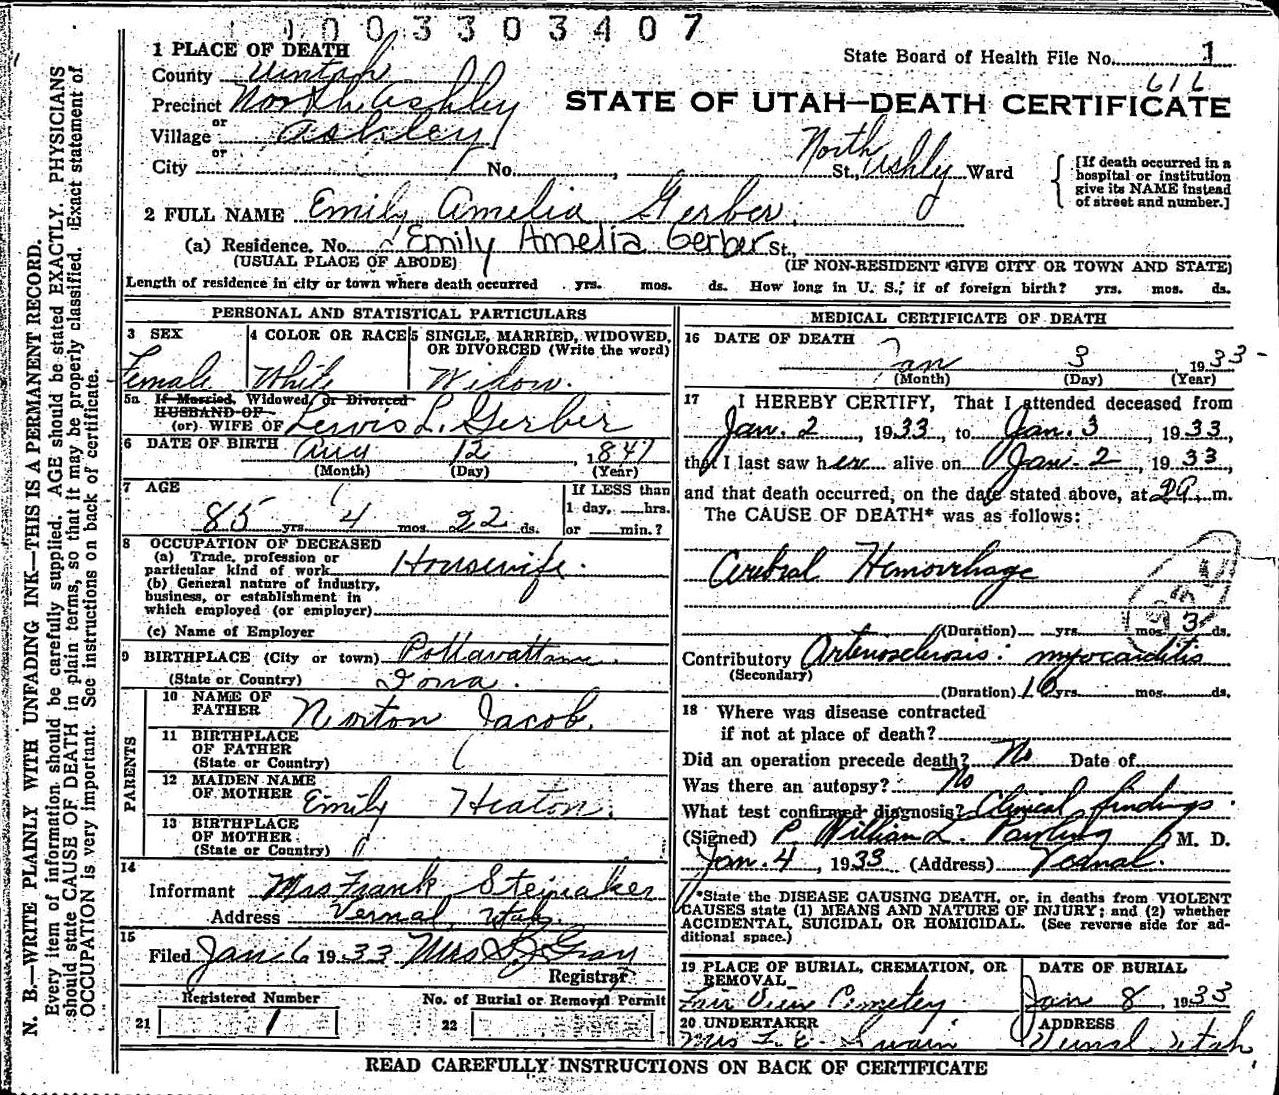 0003303407
1 PLACE OF DEATH
State Board of Health File No. 1
County Uintah
616
Precinct North Ashley
STATE OF UTAH—DEATH CERTIFICATE
or
Village Ashley
or
City No. , North St., Ashly Ward
[If death occurred in a hospital or institution give its NAME instead of street and number.]
2 FULL NAME Emily Amelia Gerber
(a) Residence, No. Emily Amelia Gerber St.,
(USUAL PLACE OF ABODE) (IF NON-RESIDENT GIVE CITY OR TOWN AND STATE)
Length of residence in city or town where death occurred yrs. mos. ds. How long in U. S., if of foreign birth? yrs. mos. ds.
PERSONAL AND STATISTICAL PARTICULARS
3 SEX
Female
4 COLOR OR RACE
White
5 SINGLE, MARRIED, WIDOWED, OR DIVORCED (Write the word)
Widow.
5a If Married, Widowed, or Divorced
HUSBAND OF
(or) WIFE OF Lewis L. Gerber
6 DATE OF BIRTH Aug 12, 1847
(Month) (Day) (Year)
7 AGE
85 yrs 4 mos. 22 ds.
If LESS than
1 day, hrs.
or min.?
8 OCCUPATION OF DECEASED
(a) Trade, profession or
particular kind of work Housewife.
(b) General nature of industry,
business, or establishment in
which employed (or employer)
(c) Name of Employer
9 BIRTHPLACE (City or town) Pottawattami
(State or Country) Iowa.
PARENTS
10 NAME OF
FATHER Norton Jacob.
11 BIRTHPLACE
OF FATHER
(State or Country)
12 MAIDEN NAME
OF MOTHER Emily Heaton.
13 BIRTHPLACE
OF MOTHER
(State or Country)
14
Informant Mrs Frank Steinaker
Address Vernal, Utah.
15
Filed Jan 6 1933 Mrs Gray
Registrar
Registered Number
21 1
No. of Burial or Removal Permit
22
MEDICAL CERTIFICATE OF DEATH
16 DATE OF DEATH
Jan 3 1933
(Month) (Day) (Year)
17 I HEREBY CERTIFY, That I attended deceased from
Jan. 2, 1933, to Jan. 3, 1933,
that I last saw her alive on Jan. 2, 1933,
and that death occurred, on the date stated above, at 2 a. m.
The CAUSE OF DEATH* was as follows:
Cerebral Hemorrhage
(Duration) yrs. mos. 3 ds.
Contributory Arteriosclerosis: myocarditis
(Secondary)
(Duration) 10 yrs. mos. ds.
18 Where was disease contracted
if not at place of death?
Did an operation precede death? No Date of
Was there an autopsy? No
What test confirmed diagnosis? Clinical findings.
(Signed) P. William L. Pawling M. D.
Jan. 4, 1933 (Address) Vernal.
*State the DISEASE CAUSING DEATH, or, in deaths from VIOLENT
CAUSES state (1) MEANS AND NATURE OF INJURY; and (2) whether
ACCIDENTAL, SUICIDAL OR HOMICIDAL. (See reverse side for ad-
ditional space.)
19 PLACE OF BURIAL, CREMATION, OR
REMOVAL
Fair View Cemetery
DATE OF BURIAL
Jan 8, 1933
20 UNDERTAKER
Mrs F. E. Swain
ADDRESS
Vernal Utah
READ CAREFULLY INSTRUCTIONS ON BACK OF CERTIFICATE
N. B.—WRITE PLAINLY WITH UNFADING INK—THIS IS A PERMANENT RECORD.
Every item of information should be carefully supplied. AGE should be stated EXACTLY. PHYSICIANS
should state CAUSE OF DEATH in plain terms, so that it may be properly classified. Exact statement of
OCCUPATION is very important. See instructions on back of certificate.